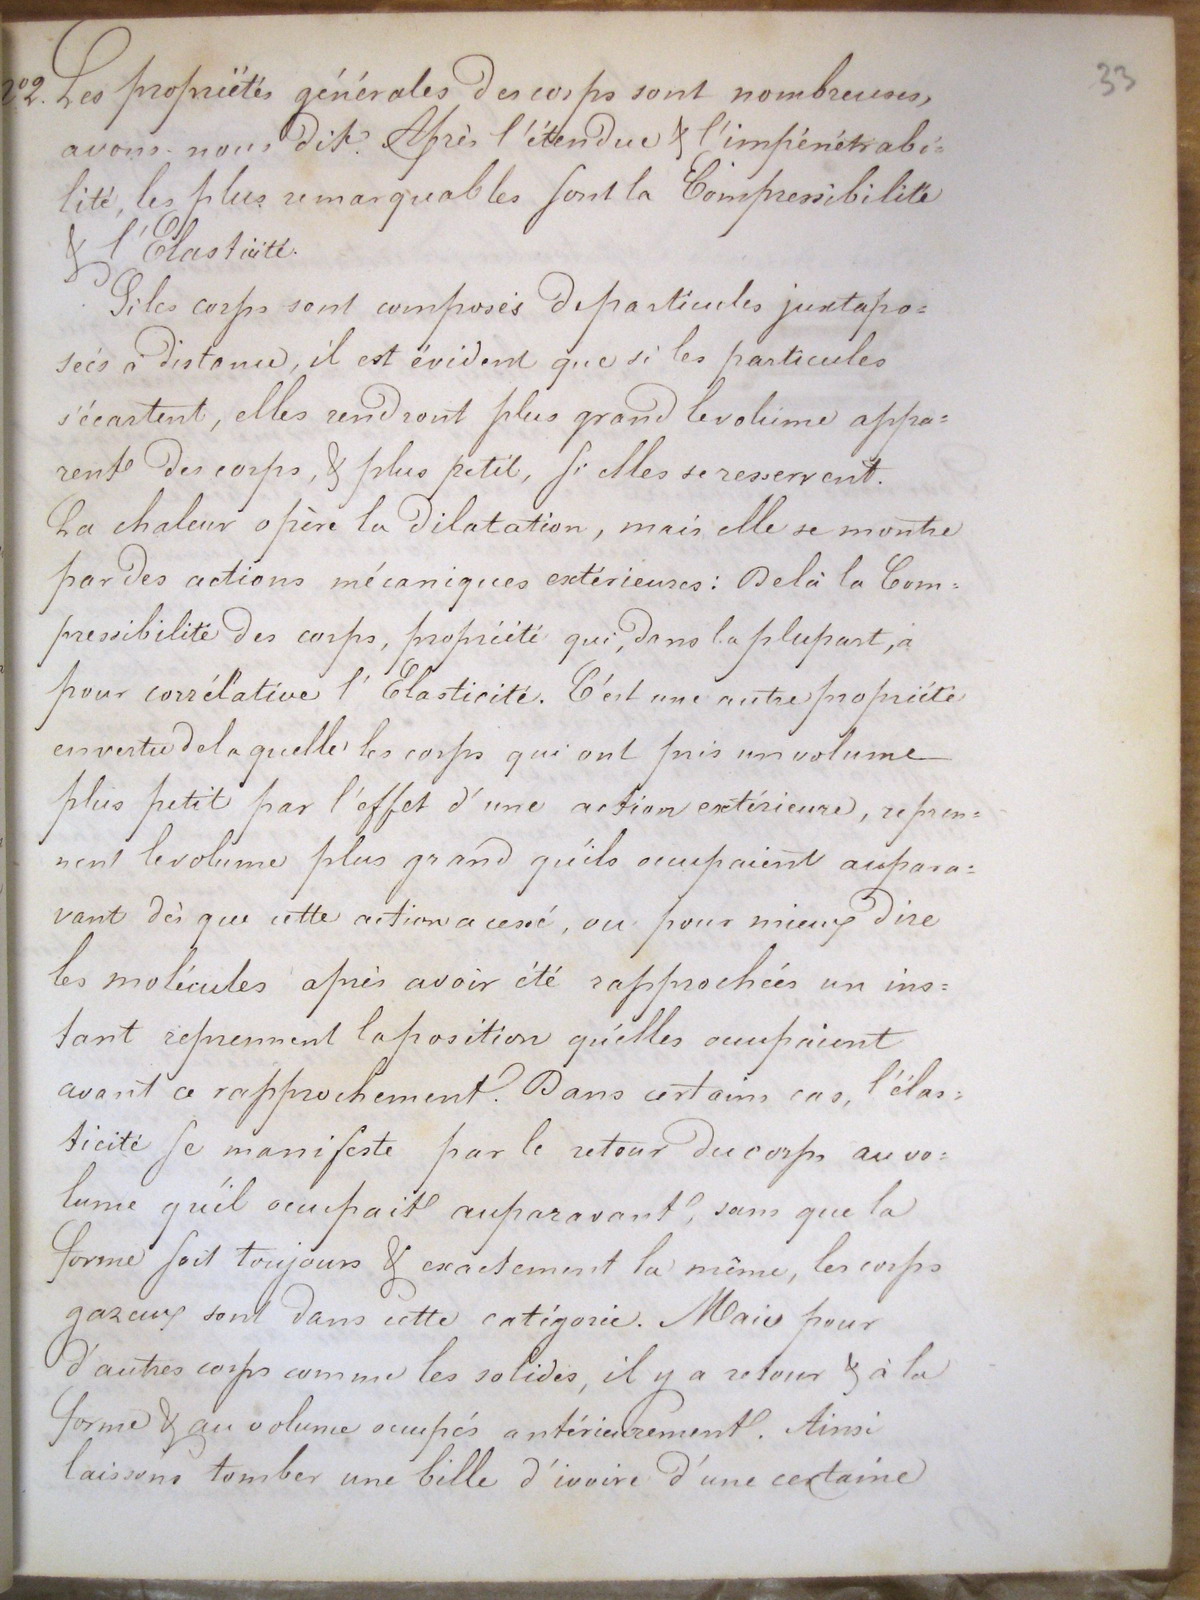 33
2º2. Les propriétés générales des corps sont nombreuses,
avons-nous dit. Après l'étendue & l'impénétrabi=
lité, les plus remarquables sont la Compressibilité
& l'Elasticité.
Si les corps sont composés de particules juxtapo=
seés à distance, il est évident que si les particules
s'écartent, elles rendront plus grand le volume appa=
rent des corps, & plus petit, si elles se resserrent.
La chaleur opère la dilatation, mais elle se montre
par des actions mécaniques extérieures: De là la Com=
pressibilité des corps, propriété qui, dans la plupart, a
pour corrélative l'Elasticité. C'est une autre propriété
en vertu de laquelle les corps qui ont pris un volume
plus petit par l'effet d'une action extérieure, repren=
nent le volume plus grand qu'ils occupaient aupara=
vant dès que cette action a cessé, ou pour mieux dire
les molécules après avoir été rapprochées un ins=
tant reprennent la position qu'elles occupaient
avant ce rapprochement. Dans certains cas, l'élas=
ticité se manifeste par le retour du corps au vo=
lume qu'il occupait auparavant, sans que la
forme soit toujours & exactement la même, les corps
gazeux sont dans cette catégorie. Mais pour
d'autres corps comme les solides, il y a retour & à la
forme & au volume occupés antérieurement. Ainsi
laissons tomber une bille d'ivoire d'une certaine